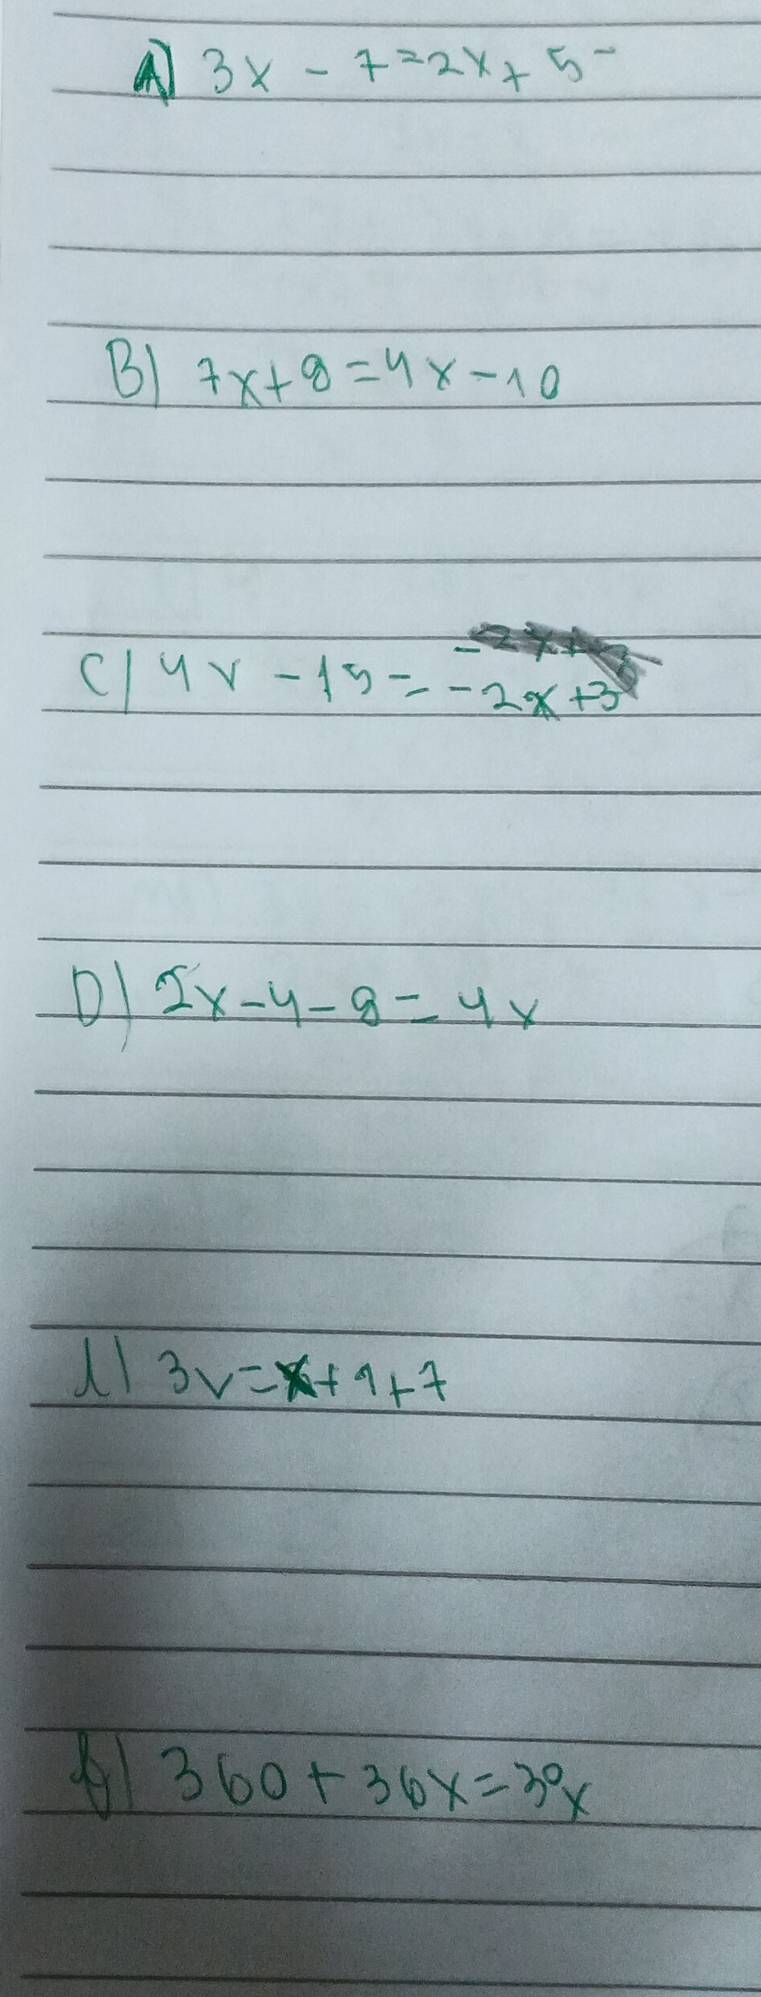 A) 3x - 7 = 2x + 5
B) 7x + 8 = 4x - 10
C) 4x - 15 = -2x + 3
D) 2x - 4 - 8 = 4x
l) 3x = x + 1 + 7
f) 360 + 36x = 30x